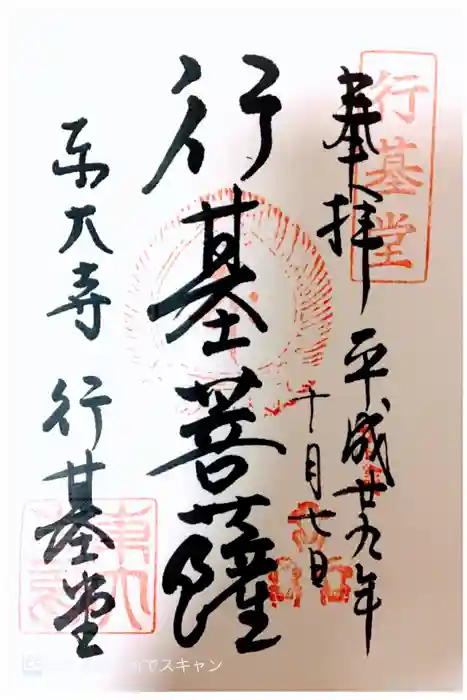 行基堂
奉拝
平成廿九年
十月七日
行基菩薩
東大寺 行基堂
でスキャン